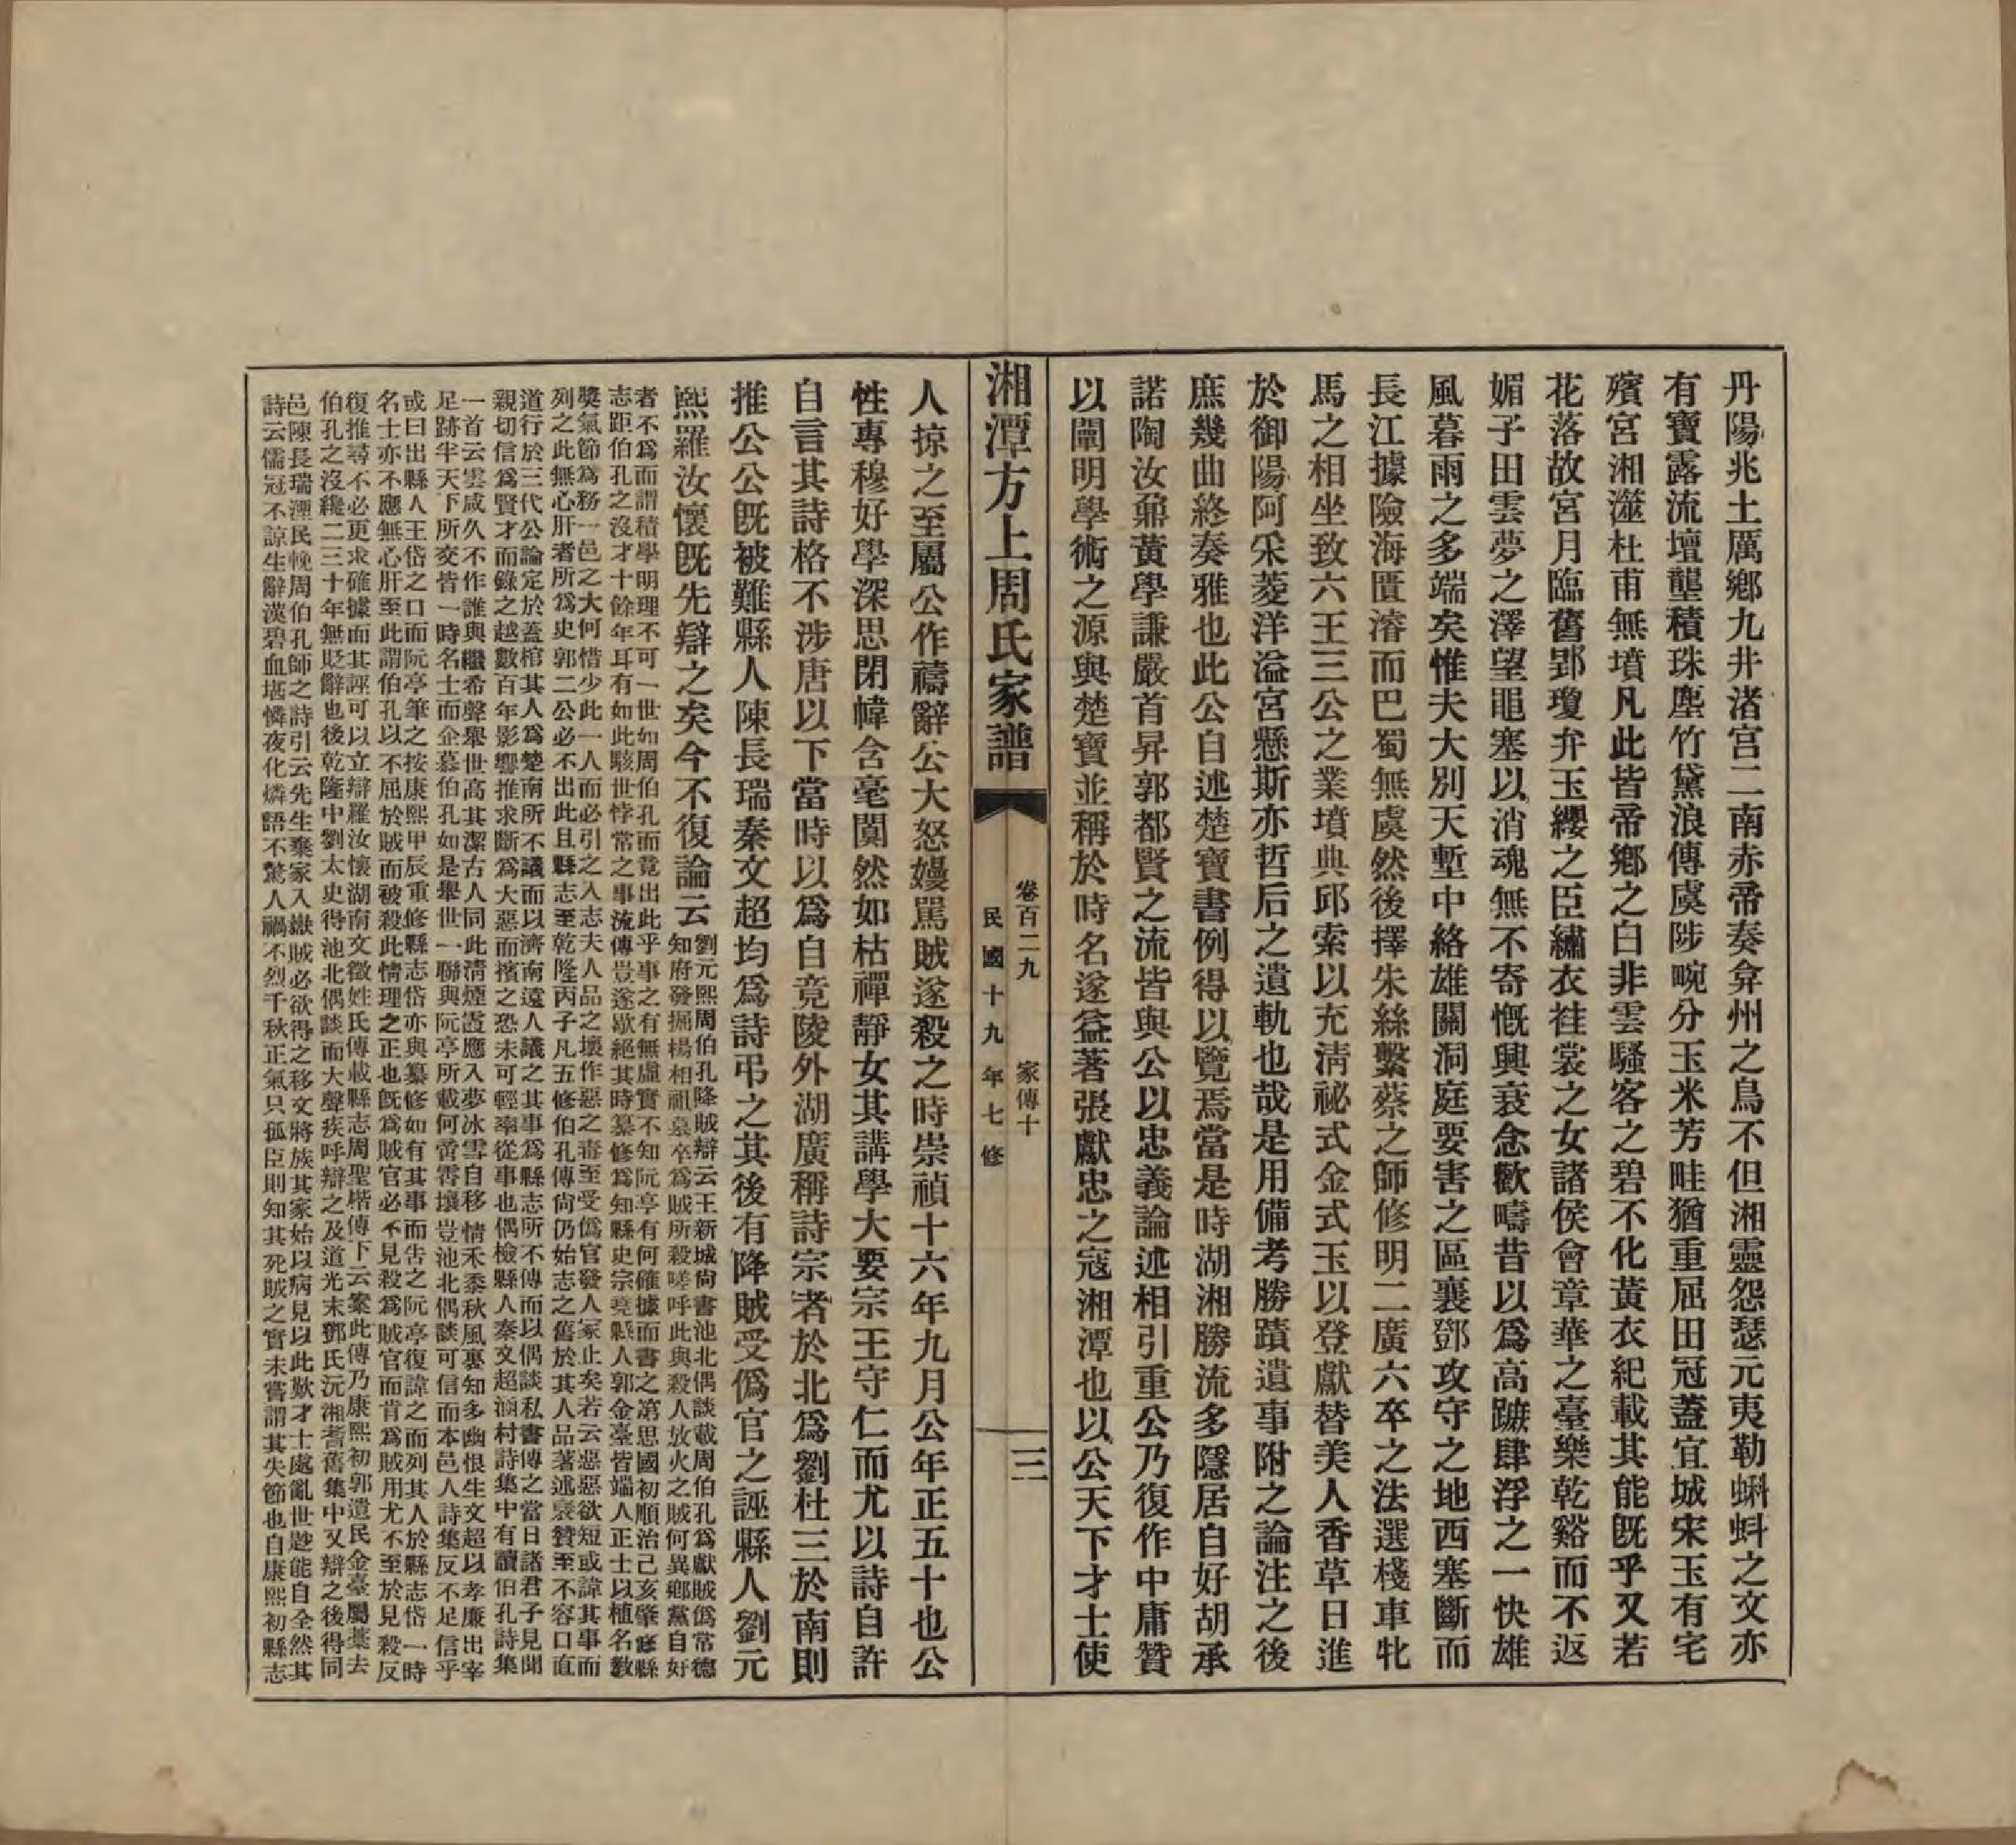 丹陽兆土厲鄉九井渚宮二南赤帝奏弇州之鳥不但湘靈怨瑟元夷勒蝌蚪之文亦
有寶露流壇壟積珠塵竹黛浪傳虞陟畹分玉米芳畦猶重屈田冠蓋宜城宋玉有宅
殯宮湘滋杜甫無墳凡此皆帝鄉之白非雲騷客之碧不化黃衣紀載其能既乎又若
花落故宮月臨舊郢瓊弁玉纓之臣繡衣袿裳之女諸侯會章華之臺樂乾谿而不返
媚子田雲夢之澤望黽塞以消魂無不寄慨興衰念歡疇昔以爲高蹠肆浮之一快雄
風暮雨之多端矣惟夫大別天塹中絡雄關洞庭要害之區襄鄧攻守之地西塞斷而
長江據險海匱濬而巴蜀無虞然後擇朱絲繫蔡之師修明二廣六卒之法選棧車牝
馬之相坐致六王三公之業墳典邱索以充淸祕式金式玉以登獻替美人香草日進
於御陽阿采菱洋溢宮懸斯亦哲后之遺軌也哉是用備考勝蹟遺事附之論注之後
庶幾曲終奏雅也此公自述楚寶書例得以覽焉當是時湖湘勝流多隱居自好胡承
諾陶汝鼐黃學謙嚴首昇郭都賢之流皆與公以忠義論述相引重公乃復作中庸贊
以闡明學術之源與楚寶並稱於時名遂益著張獻忠之寇湘潭也以公天下才士使
湘潭方上周氏家譜
卷百二九
家傳十
民國十九年七修
三
人掠之至屬公作禱辭公大怒嫚駡賊遂殺之時崇禎十六年九月公年正五十也公
性專穆好學深思閉幃含毫闃然如枯禪靜女其講學大要宗王守仁而尤以詩自許
自言其詩格不涉唐以下當時以爲自竟陵外湖廣稱詩宗者於北爲劉杜三於南則
推公公既被難縣人陳長瑞秦文超均爲詩弔之其後有降賊受僞官之誣縣人劉元
熙羅汝懷既先辯之矣今不復論云
劉元熙周伯孔降賊辯云王新城尙書池北偶談載周伯孔爲獻賊僞常德
知府發掘楊相祖墓卒爲賊所殺嗟呼此與殺人放火之賊何異鄉黨自好
者不爲而謂積學明理不可一世如周伯孔而竟出此乎事之有無虛實不知阮亭有何確據而書之第思國初順治己亥肇修縣
志距伯孔之沒才十餘年耳有如此駭世悖常之事流傳豈遂歇絕其時纂修爲知縣史宗堯縣人郭金臺皆端人正士以植名敎
獎氣節爲務一邑之大何惜少此一人而必引之入志夫人品之壞作惡之毒至受僞官發人冢止矣若云惡惡欲短或諱其事而
列之此無心肝者所爲史郭二公必不出此且縣志至乾隆丙子凡五修伯孔傳尙仍始志之舊於其人品著述袞贊至不容口直
道行於三代公論定於蓋棺其人爲楚南所不議而以濟南遠人議之其事爲縣志所不傳而以偶談私書傳之當日諸君子見聞
親切信爲賢才而錄之越數百年影響推求斷爲大惡而擯之恐未可輕率從事也偶檢縣人秦文超涵村詩集中有讀伯孔詩集
一首云雲咸久不作誰與繼希聲舉世高其潔古人同此淸煙霞應入夢冰雪自移情禾黍秋風裏知多幽恨生文超以孝廉出宰
足跡半天下所交皆一時名士而企慕伯孔如是舉世一聯與阮亭所載何啻霄壤豈池北偶談可信而本邑人詩集反不足信乎
或曰出縣人王岱之口而阮亭筆之按康熙甲辰重修縣志岱亦與纂修如有其事而吿之阮亭復諱之而列其人於縣志岱一時
名士亦不應無心肝至此謂伯孔以不屈於賊而被殺此情理之正也既爲賊官必不見殺爲賊官而肯爲賊用尤不至於見殺反
復推尋不必更求確據而其誣可以立辯羅汝懷湖南文徵姓氏傳載縣志周聖楷傳下云案此傳乃康熙初郭遺民金臺屬藁去
伯孔之沒纔二三十年無貶辭也後乾隆中劉太史得池北偶談而大聲疾呼辯之及道光末鄧氏沅湘耆舊集中又辯之後得同
邑陳長瑞湮民輓周伯孔師之詩引云先生棄家入嶽賊必欲得之移文將族其家始以病見以此歎才士處亂世尟能自全然其
詩云儒冠不諒生辭漢碧血堪憐夜化燐語不驚人禍不烈千秋正氣只孤臣則知其死賊之實未嘗謂其失節也自康熙初縣志